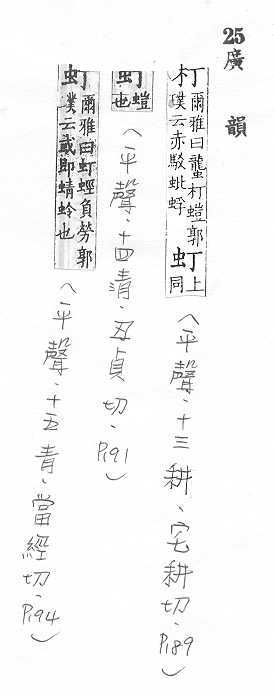 25廣韻
朾爾雅曰蠪朾螘郭璞云赤駁蚍蜉虰上同(平聲、十三耕、宅耕切、P189)
虰螘也(平聲、十四清、丑貞切、P191)
虰爾雅曰虰蛵負勞郭璞云或即蜻蛉也(平聲、十五青、當經切、P194)